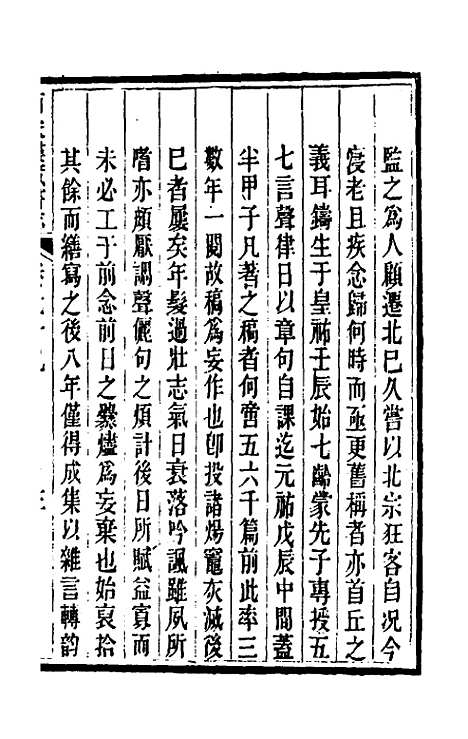 監之為人顧遷北巳久嘗以北宗狂客自况今
寖老且疾念歸何時而亟更舊稱者亦首丘之
義耳鑄生于皇祐壬辰始七齡蒙先子專授五
七言聲律日以章句自課迄元祐戊辰中間蓋
半甲子凡著之稿者何啻五六千篇前此率三
數年一閱故稿為妄作也卽投諸煬竈灰滅後
巳者屢矣年髮過壯志氣日衰落吟諷雖夙所
嗜亦頗厭調聲儷句之煩計後日所賦益寡而
未必工于前念前日之爨燼為妄棄也始裒拾
其餘而繕寫之後八年僅得成集以雜言轉韵